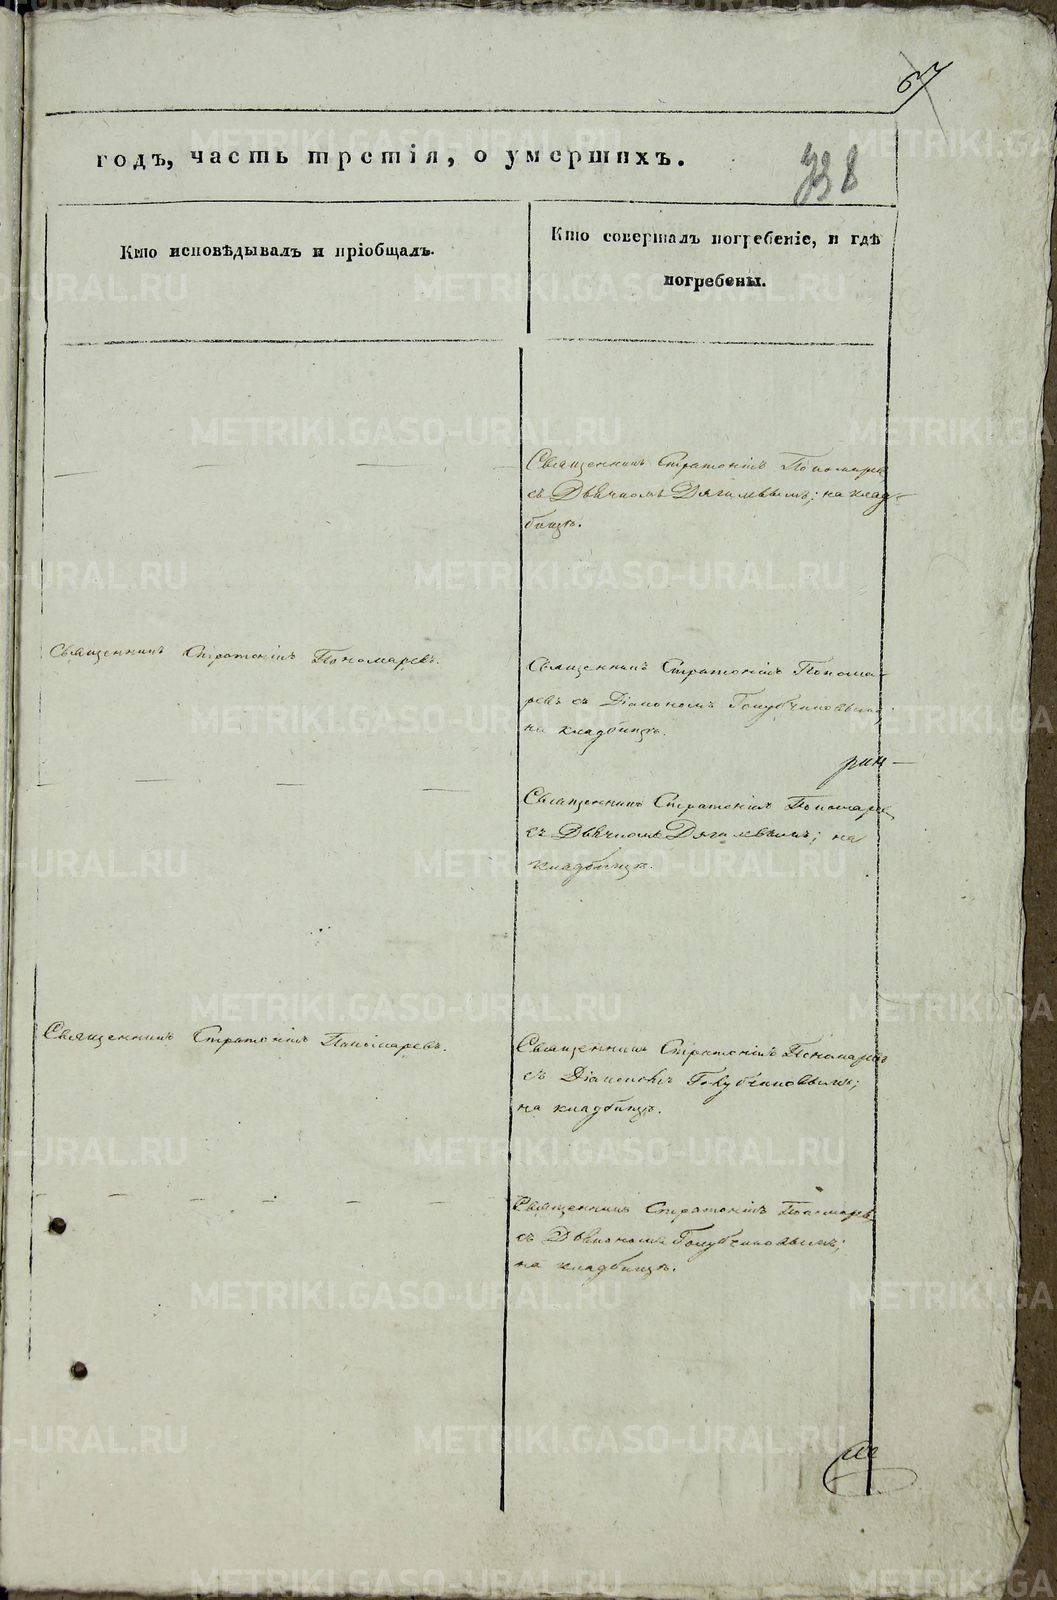 67
годъ, часть третія, о умершихъ.
738
Кто исповѣдывалъ и пріобщалъ.
Кто совершалъ погребеніе, и гдѣ
погребены.
Священникъ Стратоникъ Пономаре
съ Дьячкомъ Дягилевымъ; на клад-
бищѣ.
Священникъ Стратоникъ Пономаревъ.
Священникъ Стратоникъ Понома-
ревъ съ Діакономъ Голубчиковымъ;
на кладбищѣ.
Священникъ Стратоникъ Пономаре
съ Дьячкомъ Дягилевымъ; на
кладбищѣ.
Священникъ Стратоникъ Пономаревъ.
Священникъ Стратоникъ Пономаревъ
съ Діакономъ Голубчиковымъ;
на кладбищѣ.
Священникъ Стратоникъ Пономарев
съ Діакономъ Голубчиковымъ;
на кладбищѣ.
METRIKI.GASO-URAL.RU